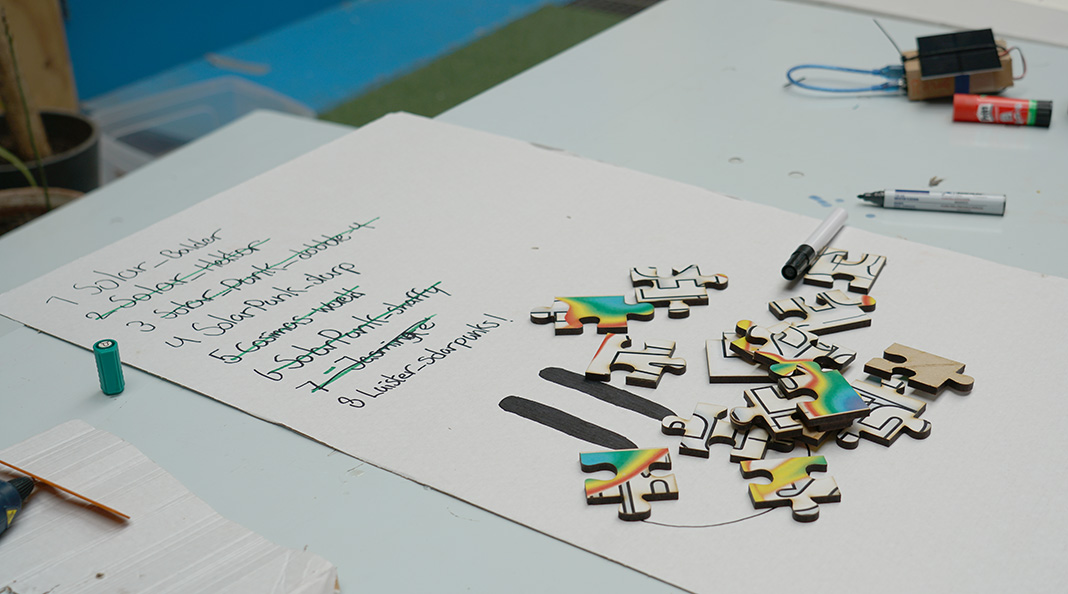 1 Solar_Balder
2 Solar_Hektor
3 Solar_Punk_cobble_4
4 SolarPunk_slurp
5 Cosmos-west
6 SolarPunk_shaffy
7 - Jeannette
8 Luister_Solarpunks!
Pritt